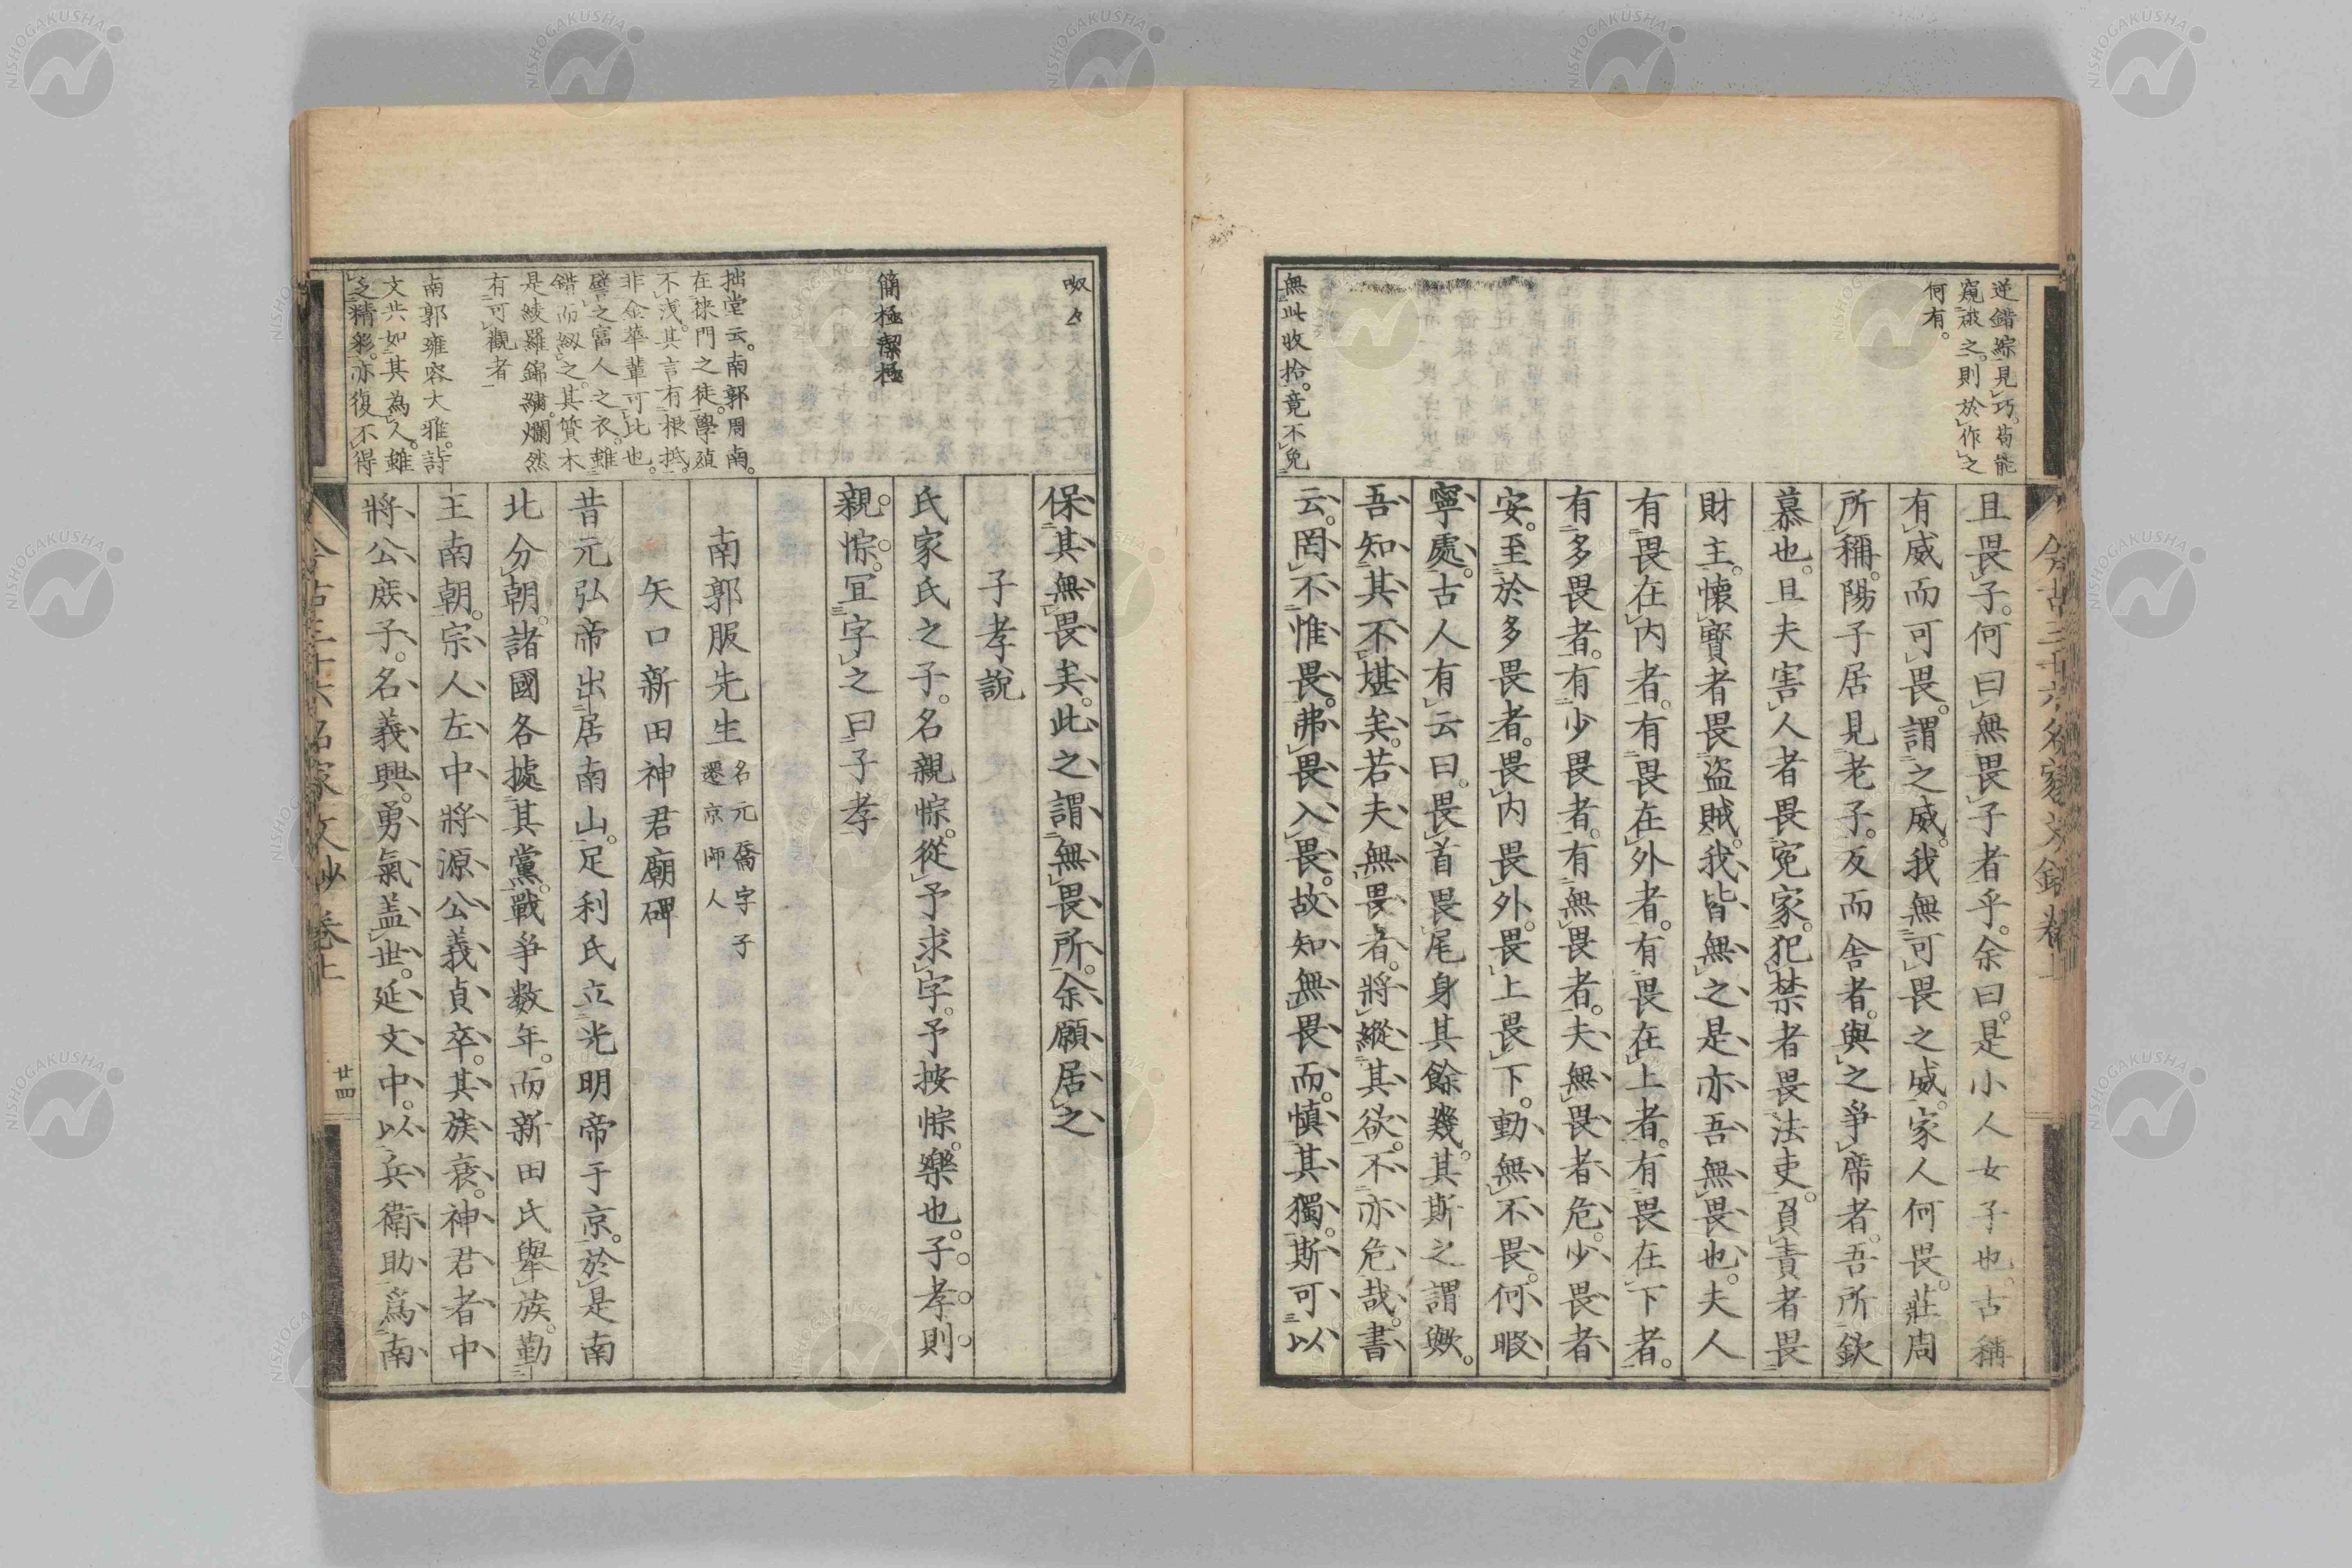 逆錯綜見巧。苟能
窺破之。則於作之
何有。
無此收拾。竟不免
且畏子。何曰無畏子者乎。余曰。是小人女子也。古稱
有威而可畏。謂之威。我無可畏之威。家人何畏。莊周
所稱。陽子居見老子。反而舍者。與之爭席者。吾所欽
慕也。且夫害人者畏冤家。犯禁者畏法吏。負責者畏
財主。懷寶者畏盜賊。我皆無之。是亦吾無畏也。夫人
有畏在內者。有畏在外者。有畏在上者。有畏在下者。
有多畏者。有少畏者。有無畏者。夫無畏者危。少畏者
安。至於多畏者。畏內畏外。畏上畏下。動無不畏。何暇
寧處。古人有云曰。畏首畏尾身其餘幾。其斯之謂歟。
吾知其不堪矣。若夫無畏者。將縱其欲。不亦危哉。書
云。罔不惟畏。弗畏入畏。故知無畏而。慎其獨。斯可以
今古三十六名家文鈔卷上
呶々
簡極潔極
拙堂云。南郭周南。
在徠門之徒。學殖
不淺。其言有根柢。
非金華輩可比也。
譬之富人之衣。雖
錯而紉之。其質木
是綾羅錦繡。爛然
有可觀者
南郭雍容大雅。詩
文共如其為人。雖
之精彩。亦復不得
保其無畏矣。此之謂無畏所。余願居之
子孝說
氏家氏之子。名親悰。從予求字。予按悰。樂也。子孝則
親悰。宜字之曰子孝
南郭服先生 名元喬字子
遷京師人
矢口新田神君廟碑
昔元弘帝出居南山。足利氏立光明帝于京。於是南
北分朝。諸國各據其黨。戰爭数年。而新田氏舉族勤
王南朝。宗人左中將源公義貞卒。其族衰。神君者中
將公庶子。名義興。勇氣蓋世。延文中。以兵衛助爲南
今古三十六名家文鈔 卷上
廿四